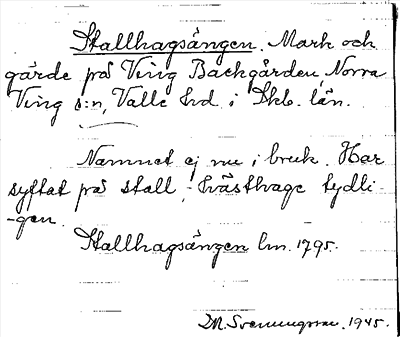 Stallhagsängen. Mark och
gärde på Ving Backgården Norra
Ving s:n, Valle hd. i Skb. län.
Namnet ej nu i bruk. Har
syftat på stall-, hästhage tydli-
-gen.
Stallhagsängen lm. 1795.
D.N. Svenungsson. 1945.